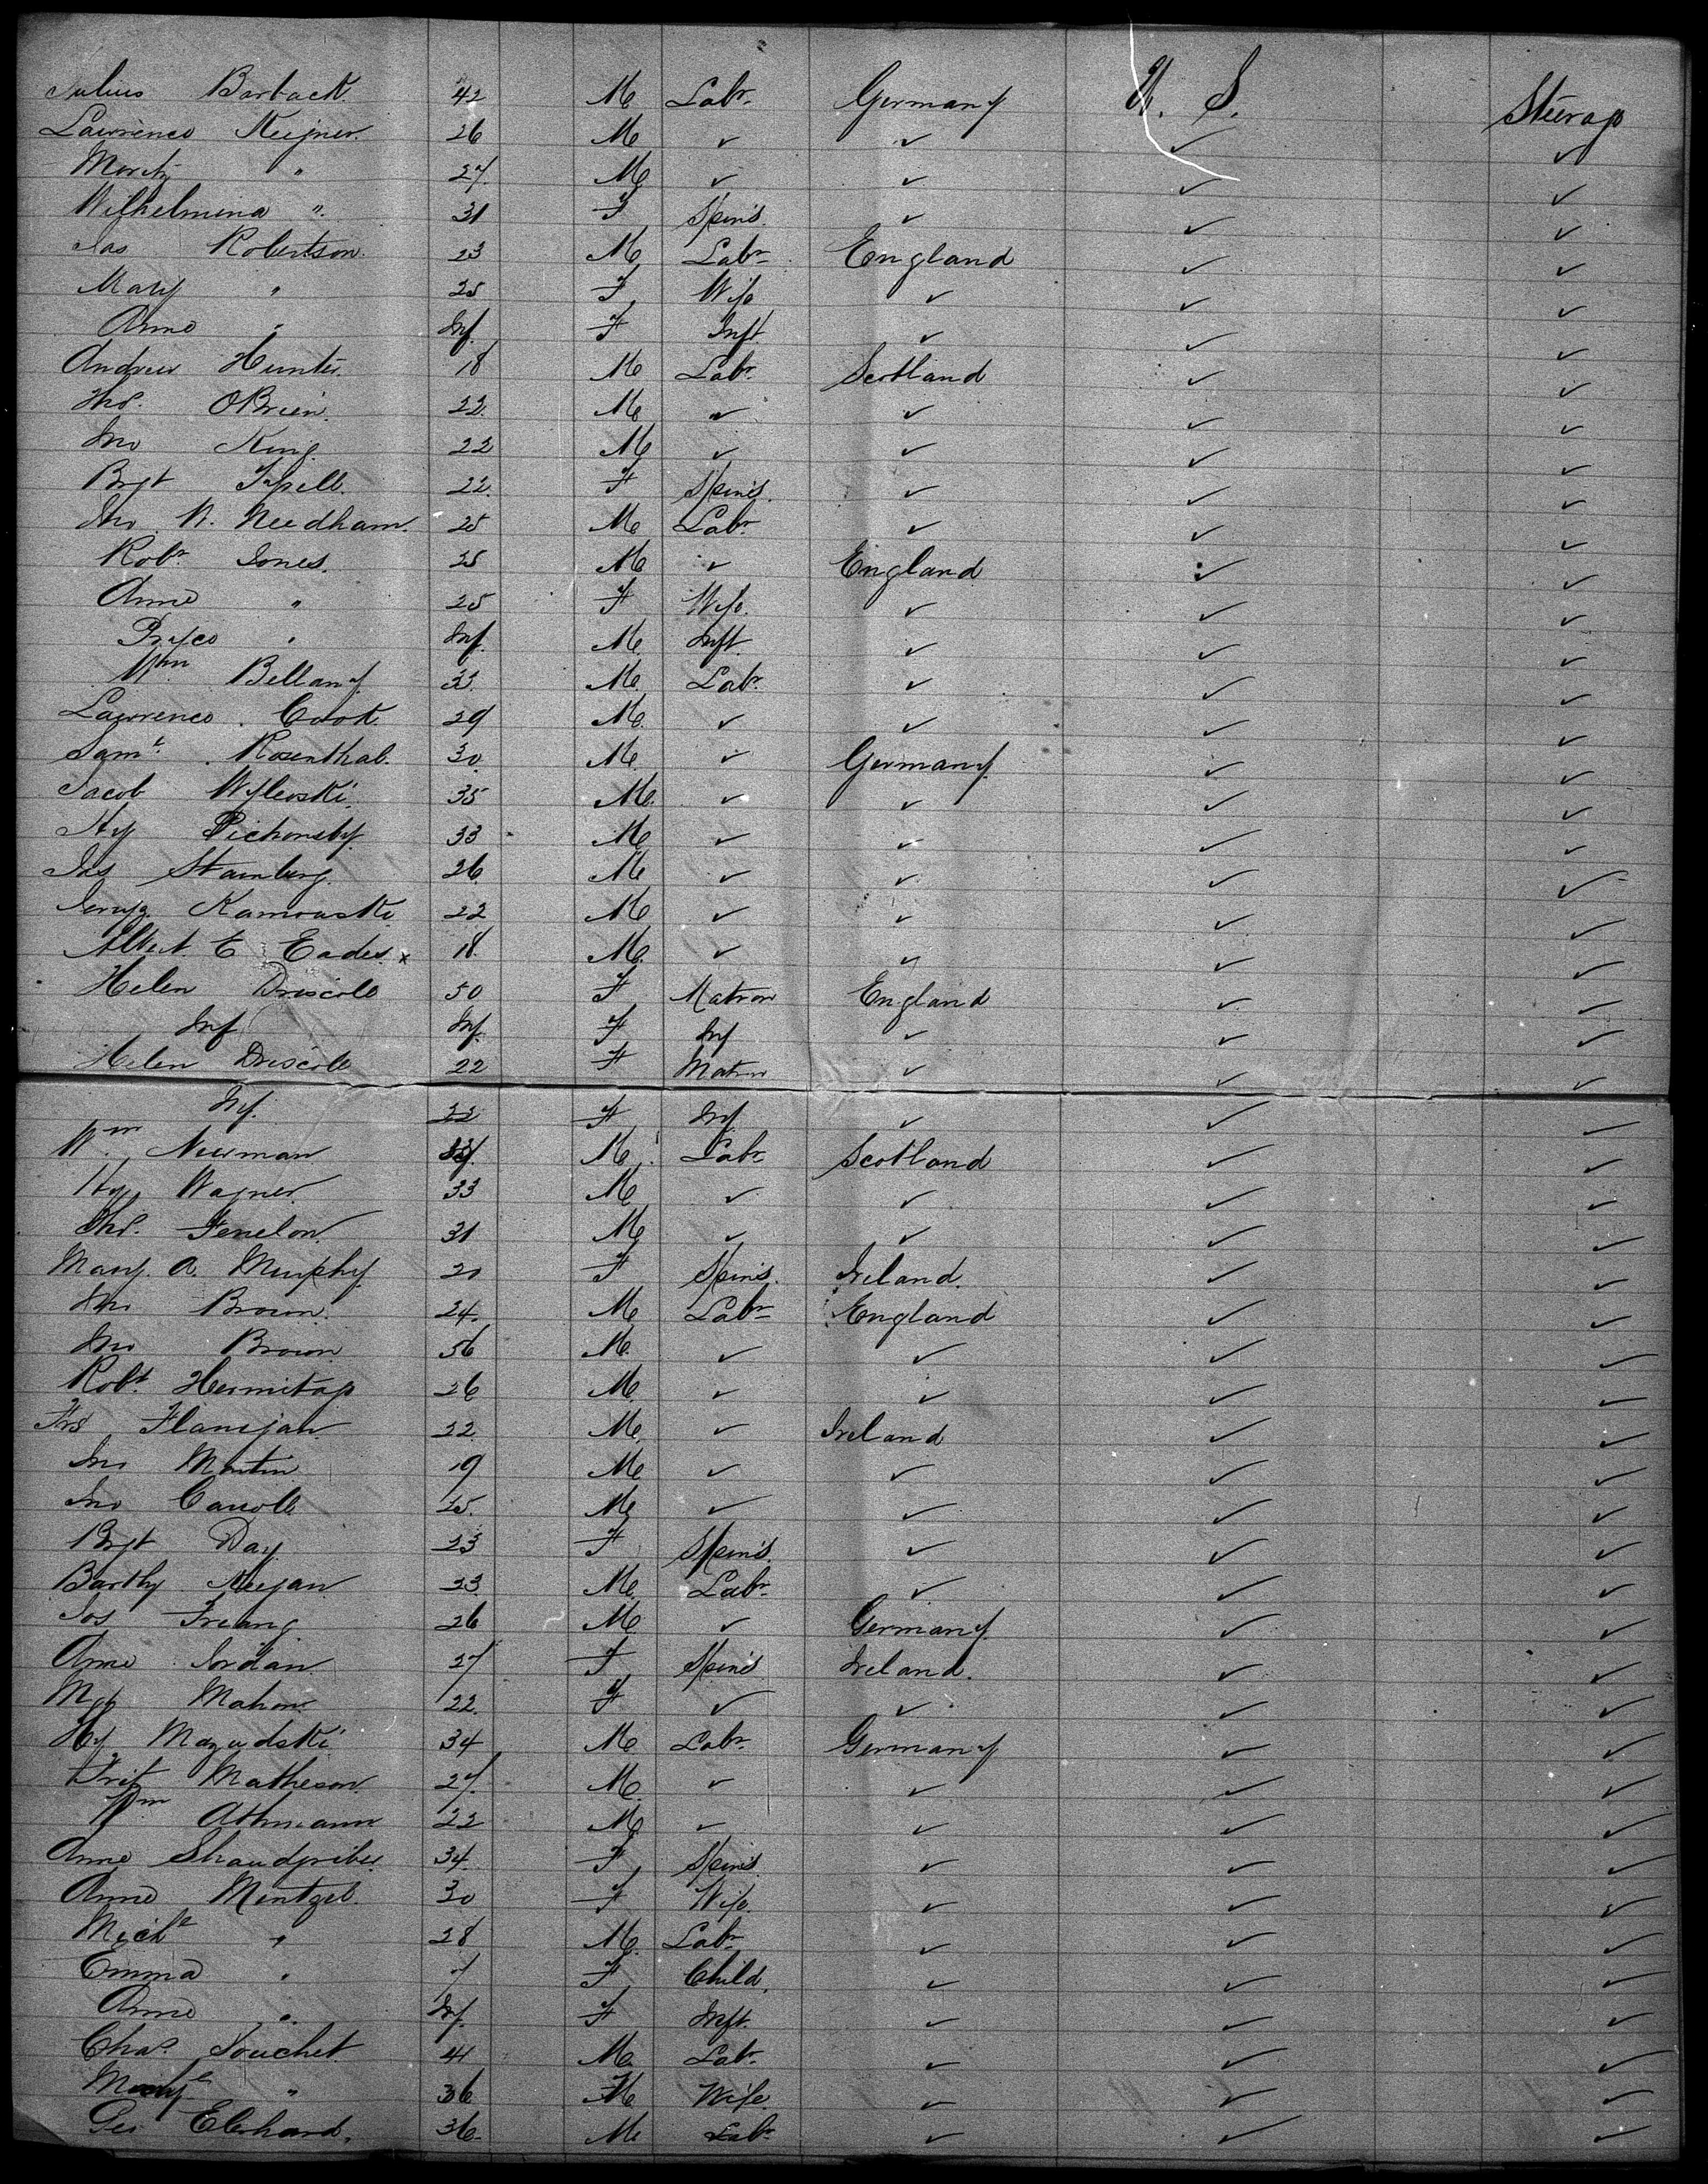 Julius Barback. 42 M Labr Germany U. S. Steerage
Lawrence Keijner. 26 M ✓ ✓ ✓ ✓
Moritz " 27. M ✓ ✓ ✓ ✓
Wilhelmina " 31 F Spins. ✓ ✓ ✓
Jas Robertson. 23 M Labr England ✓ ✓
Mary " 25 F Wife ✓ ✓ ✓
Anne " Inf. F Inft. ✓ ✓ ✓
Andrew Hunter. 18 M Labr. Scotland ✓ ✓
Thos. OBrien. 22. M ✓ ✓ ✓ ✓
Jno King. 22 M ✓ ✓ ✓ ✓
Brgt 22. F Spins. ✓ ✓ ✓
Jno. W. Needham. 25 M Labr. ✓ ✓ ✓
Robt. Jones. 25 M ✓ England ✓ ✓
Anne " 25 F Wife. ✓ ✓ ✓
Pryce " Inf. M. Inft. ✓ ✓ ✓
Wm. Bellamy. 33. M. Labr. ✓ ✓ ✓
Lawrence. Cook. 29 M. ✓ ✓ ✓ ✓
Saml. Rosenthal. 30. M. ✓ Germany. ✓ ✓
Jacob Wyleoski. 35 M. ✓ ✓ ✓ ✓
Hy Pichonsby. 33 M ✓ ✓ ✓ ✓
Jos Stainberg. 26. M ✓ ✓ ✓ ✓
Kamrouski 22 M ✓ ✓ ✓ ✓
Albert. E Eades. x 18. M. ✓ ✓ ✓ ✓
Helen Driscoll 50 F Matron England ✓ ✓
Inf Inf. F Inf ✓ ✓ ✓
Helen Driscoll 22 F Matron ✓ ✓ ✓
Inf. 22 F Inf ✓ ✓ ✓
Wm. Newman M. Labr Scotland ✓ ✓
Hy. Wagner. 33 M ✓ ✓ ✓ ✓
Thos. Fenelon. 31 M ✓ ✓ ✓ ✓
Mary. A. Murphy. 20 F Spins. Ireland. ✓ ✓
Jno Brown. 24. M Labr England ✓ ✓
Jno Brown 56 M. ✓ ✓ ✓ ✓
Robt. Hermitage 26 M. ✓ ✓ ✓ ✓
Frs Flanigan. 22. M. ✓ Ireland ✓ ✓
Jno Martin. 19 M ✓ ✓ ✓ ✓
Jno Carroll 25. M ✓ ✓ ✓ ✓
Brgt Day. 23 F Spins. ✓ ✓ ✓
Barthy. Keegan 23 M. Labr. ✓ ✓ ✓
Jos Freang 26 M. ✓ Germany. ✓ ✓
Anne Jordan. 27 F Spins Ireland. ✓ ✓
Mgt Mahon. 22. F ✓ ✓ ✓ ✓
Hy Mazudski. 34 M Labr. Germany ✓ ✓
Fritz Matheson. 27. M. ✓ ✓ ✓ ✓
Wm. Athmann 22 M ✓ ✓ ✓ ✓
Anne 34. F Spins. ✓ ✓ ✓
Anne Mentzel. 30 F Wife. ✓ ✓ ✓
Michl " 28 M. Labr. ✓ ✓ ✓
Emma " 7 F Child. ✓ ✓ ✓
Anne " Inf. F Inft. ✓ ✓ ✓
Chas. Souchet. 41 M. Labr. ✓ ✓ ✓
" 36 Wife. ✓ ✓ ✓
Geo Eberhard. 36. M Labr ✓ ✓ ✓